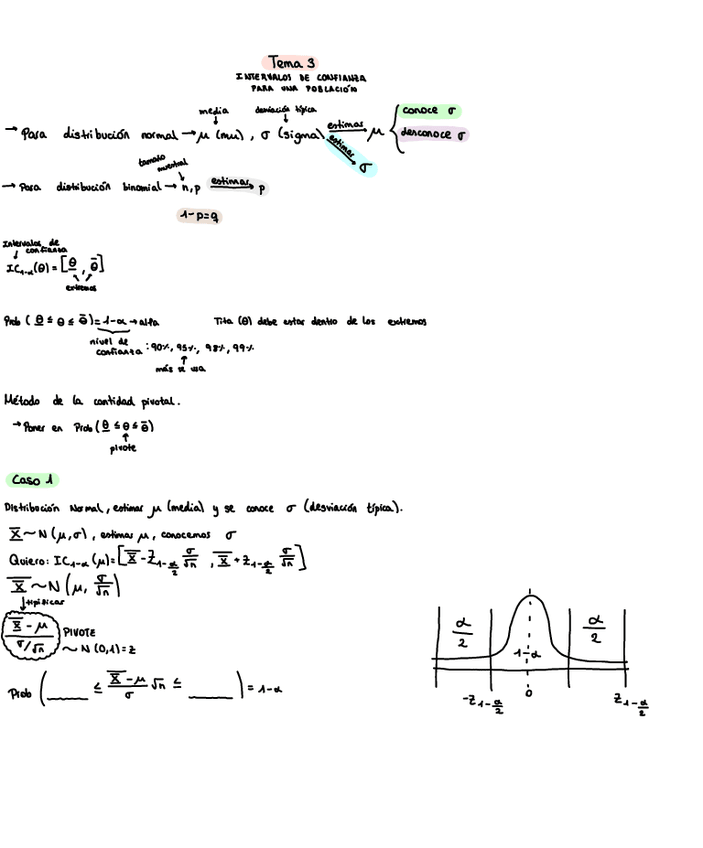 Tema 3
INTERVALOS DE CONFIANZA
PARA UNA POBLACIÓN
media desviación típica
→ Para distribución normal → μ (mu), σ (sigma) estimar → μ { conoce σ
desconoce σ
estimar σ
tamaño muestral
→ Para distribución binomial → n, p estimar → p
1-p=q
Intervalos de
confianza
IC₁₋α(θ) = [θ̲, θ̄]
extremos
Prob (θ̲ ≤ θ ≤ θ̄) = 1-α → alfa Tita (θ) debe estar dentro de los extremos
nivel de
confianza : 90%, 95%, 98%, 99%
más se usa
Método de la cantidad pivotal.
→ Poner en Prob (θ̲ ≤ θ ≤ θ̄)
pivote
Caso 1
Distribución Normal, estimar μ (media) y se conoce σ (desviación típica).
X̄ ~ N (μ, σ), estimas μ, conocemos σ
Quiero: IC₁₋α (μ) = [X̄ - Z_{1-α/2} σ/√n , X̄ + Z_{1-α/2} σ/√n]
X̄ ~ N (μ, σ/√n)
↓ tipificar
(X̄ - μ)/(σ/√n) PIVOTE
~ N (0,1) = Z
Prob ( ____ ≤ (X̄ - μ)/σ √n ≤ ____ ) = 1-α
α/2 α/2
1-α
-Z_{1-α/2} 0 Z_{1-α/2}